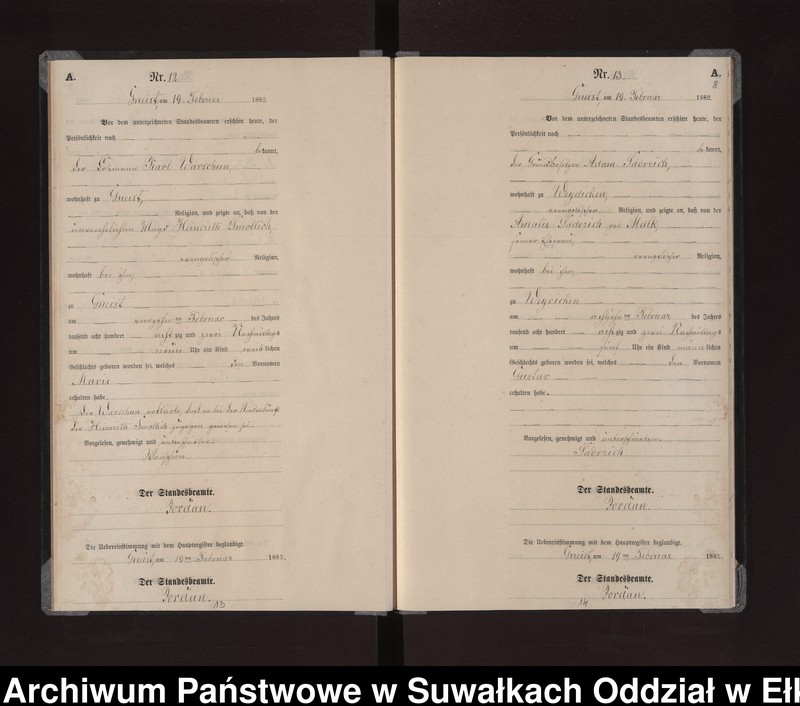 A. Nr. 12
Gneist, am 19. Februar 1882.
Vor dem unterzeichneten Standesbeamten erschien heute, der
Persönlichkeit nach
bekannt,
der Karl Warschun,
wohnhaft zu Gneist,
Religion, und zeigte an, daß von der
unverehelichten Magd Heinriette Smollich
evangelischer Religion,
wohnhaft bei ihm,
zu Gneist
am ten Februar des Jahres
tausend acht hundert achtzig und zwei Nachmittags
um neun Uhr ein Kind weiblichen
Geschlechts geboren worden sei, welches den Vornamen
Marie
erhalten habe.
Der Warschun erklärte, daß er bei der Niederkunft
der Heinriette Smollich zugegen gewesen sei.
Vorgelesen, genehmigt und unterschrieben.
Warschun.
Der Standesbeamte.
Jordan.
Die Uebereinstimmung mit dem Hauptregister beglaubigt.
Gneist, am 19ten Februar 1882.
Der Standesbeamte.
Jordan.
13
Nr. 13 A.
8
Gneist, am 19. Februar 1882.
Vor dem unterzeichneten Standesbeamten erschien heute, der
Persönlichkeit nach
bekannt,
der Grundbesitzer Adam
wohnhaft zu Weydicken,
evangelischer Religion, und zeigte an, daß von der
Amalie geb Malk,
seiner Ehefrau,
evangelischer Religion,
wohnhaft bei ihm,
zu Weydicken
am ten Februar des Jahres
tausend acht hundert achtzig und zwei Nachmittags
um fünf Uhr ein Kind männlichen
Geschlechts geboren worden sei, welches den Vornamen
Gustav
erhalten habe.
Vorgelesen, genehmigt und unterschrieben.
Der Standesbeamte.
Jordan.
Die Uebereinstimmung mit dem Hauptregister beglaubigt.
Gneist, am 19ten Februar 1882.
Der Standesbeamte.
Jordan.
14
Archiwum Państwowe w Suwałkach Oddział w Ełk